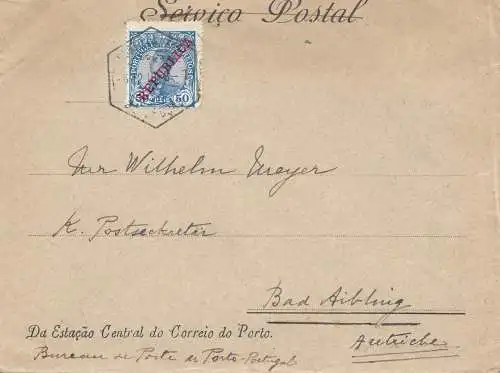 Serviço Postal
PORTUGAL
REPUBLICA
50
Herr Wilhelm Mayer
K. Postsekretär
Bad Aibling
Autriche
Da Estação Central do Correio do Porto.
Bureau de Poste de Porto-Portugal